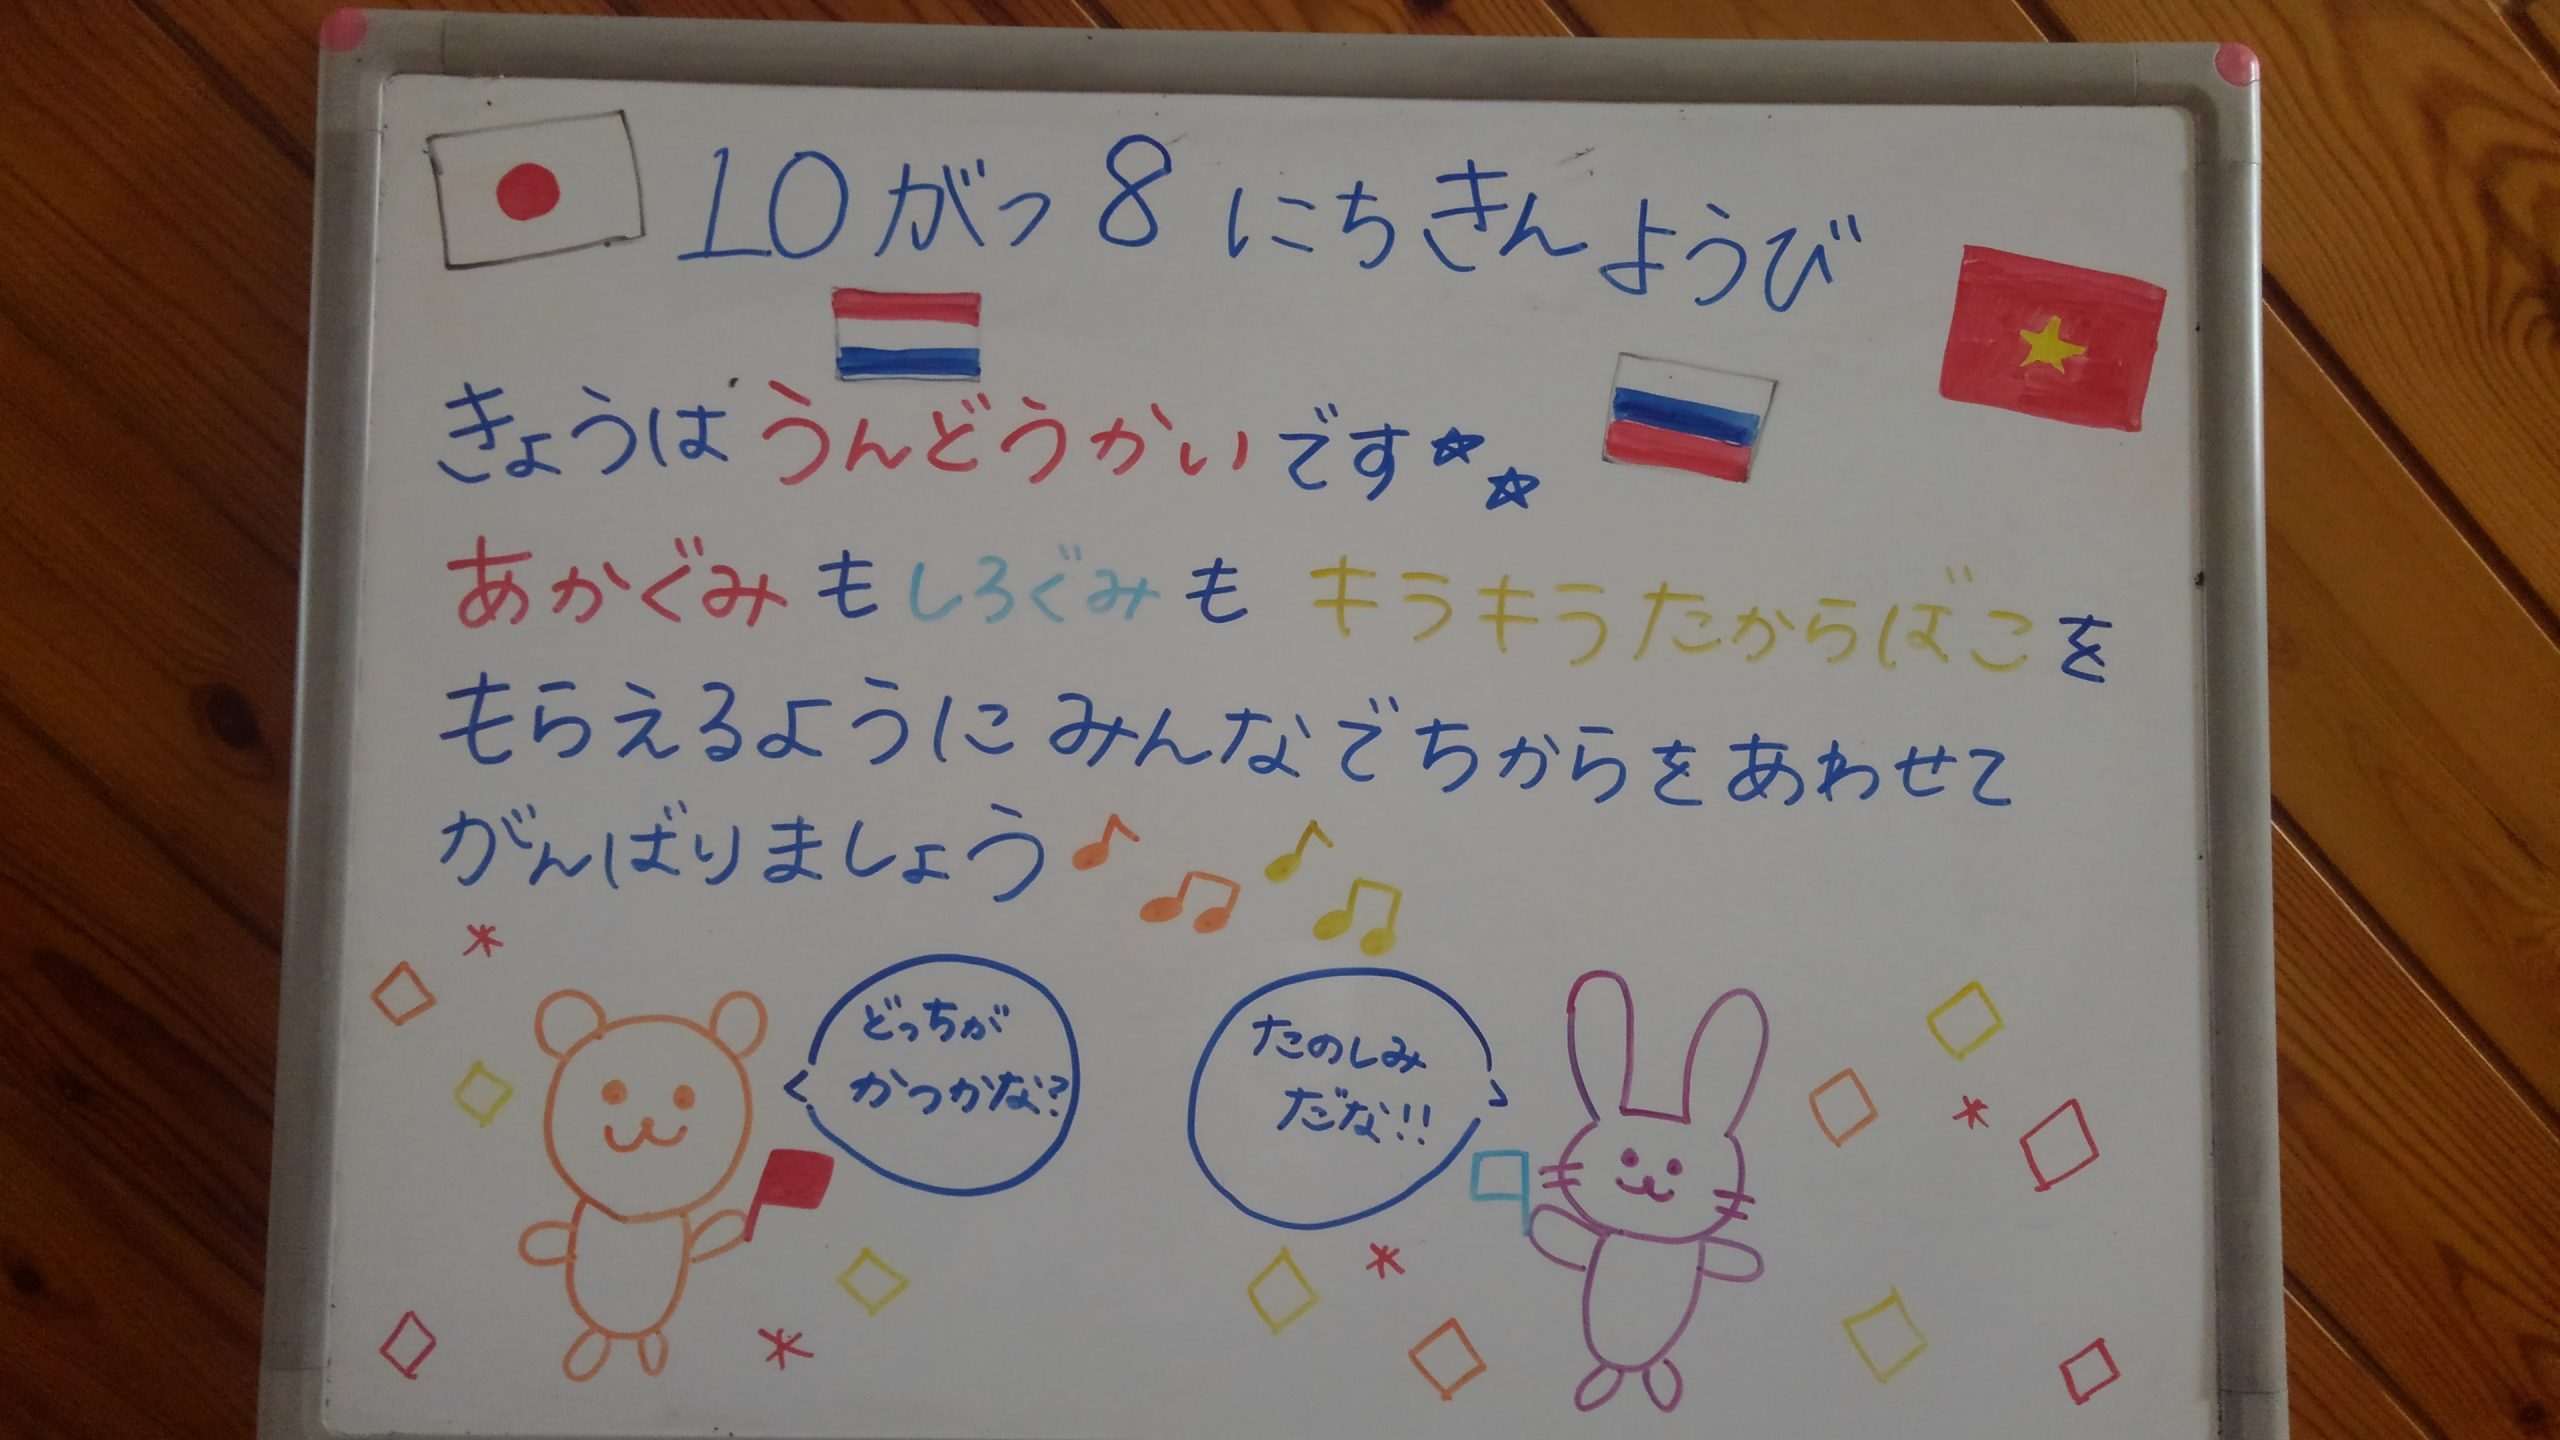 10がつ8にちきんようび
きょうはうんどうかいです☆☆
あかぐみもしろぐみもキラキラたからばこを
もらえるようにみんなでちからをあわせて
がんばりましょう♪♫♪♫
どっちが
かつかな?
たのしみ
だな!!